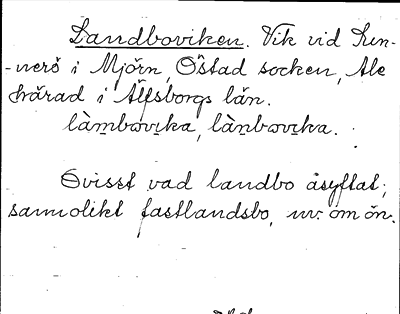 Landboviken. Vik vid Sun-
-nerö i Mjörn, Östad socken, Ale
härad i Älfsborgs län.
làmbωvıka, làn̥bωvıka.
Ovisst vad landbo åsyftat;
sannolikt fastlandsbo, nv. om ön.